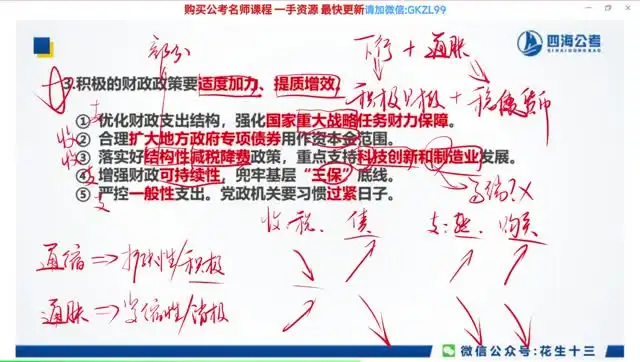 购买公考名师课程 一手资源 最快更新请加微信:GKZL99
四海公考
SIHAIGONGKAO
部分
下行 + 通胀
3.积极的财政政策要适度加力、提质增效
积极财政 + 稳健货币
① 优化财政支出结构，强化国家重大战略任务财力保障。
② 合理扩大地方政府专项债券用作资本金范围。
③ 落实好结构性减税降费政策，重点支持科技创新和制造业发展。
④ 增强财政可持续性，兜牢基层“三保”底线。
⑤ 严控一般性支出。党政机关要习惯过紧日子。
支
收
收
支
支
高端?X
收:税. 债
支: 购买
通缩 ⇒ 扩张性/积极
通胀 ⇒ 紧缩性/消极
微信公众号:花生十三